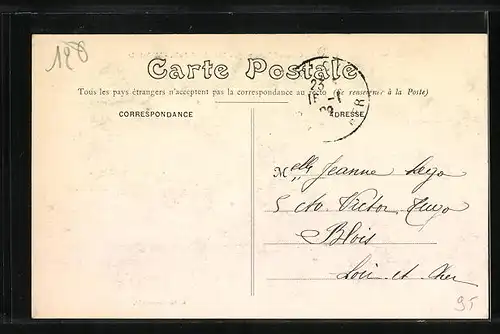 120
Carte Postale
Tous les pays étrangers n'acceptent pas la correspondance au recto (Se renseigner à la Poste)
CORRESPONDANCE
ADRESSE
Melle Jeanne
5 cto. Victor Hugo
Blois
Loir et Cher
95